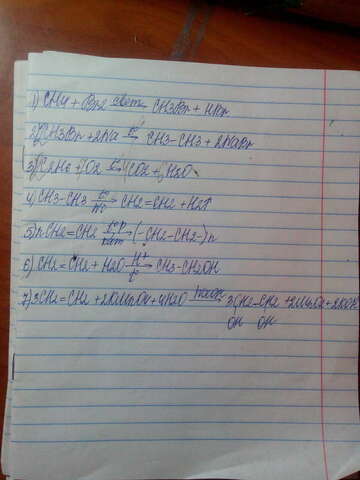 1) CH4 + Br2 свет→ CH3Br + HBr
2) 2CH3Br + 2Na t°→ CH3-CH3 + 2NaBr
3) C2H6 + O2 t°→ CO2 + H2O
4) CH3-CH3 t°→ CH2=CH2 + H2↑
5) nCH2=CH2 t°P→ кат (-CH2-CH2-)n
6) CH2=CH2 + H2O H+→ t° CH3-CH2OH
7) 3CH2=CH2 + 2KMnO4 + 4H2O → 3CH2-CH2 + 2MnO2 + 2KOH
OH OH